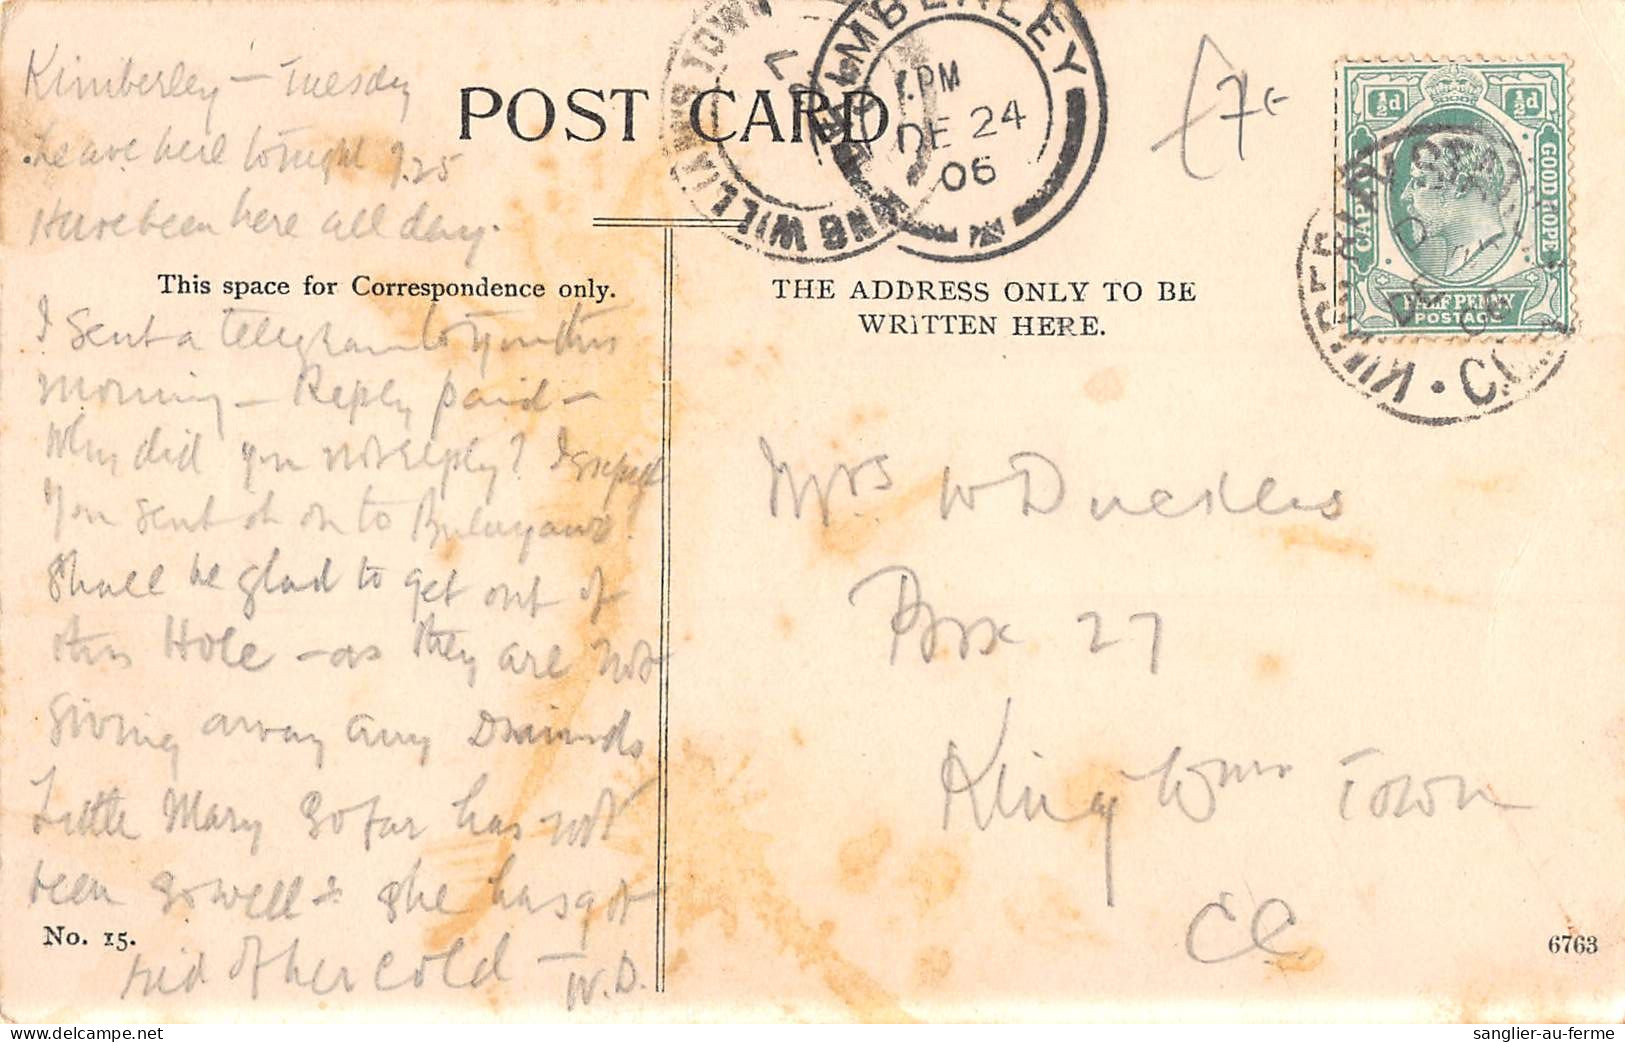 Kimberley — Tuesday
Leave here tonight 9.25
Have been here all day.
POST CARD
KIMBERLEY
PM
DE 24
06
KING WILLIAMS TOWN
£7-
½d ½d
CAPE OF GOOD HOPE
HALF PENNY
POSTAGE
This space for Correspondence only.
THE ADDRESS ONLY TO BE
WRITTEN HERE.
I sent a telegram to you this
morning — Reply paid —
Why did you not reply? I
You sent it on to Bulawayo.
Shall be glad to get out of
this Hole — as they are not
giving away any Diamonds
Little Mary so far has not
been so well & she has got
rid of her cold —
W.D.
Mrs W Duckles
Box 27
King Wms Town
CC
No. 15.
6763
sanglier-au-ferme
www.delcampe.net